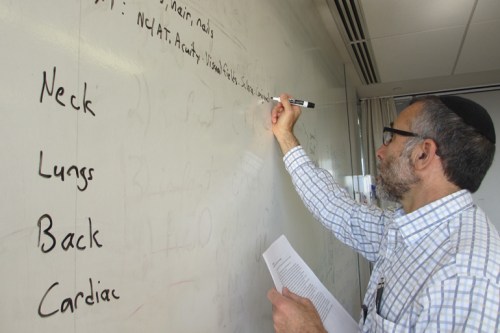 hair, nails
NC/AT, Acuity, Visual Fields,
Neck
Lungs
Back
Cardiac